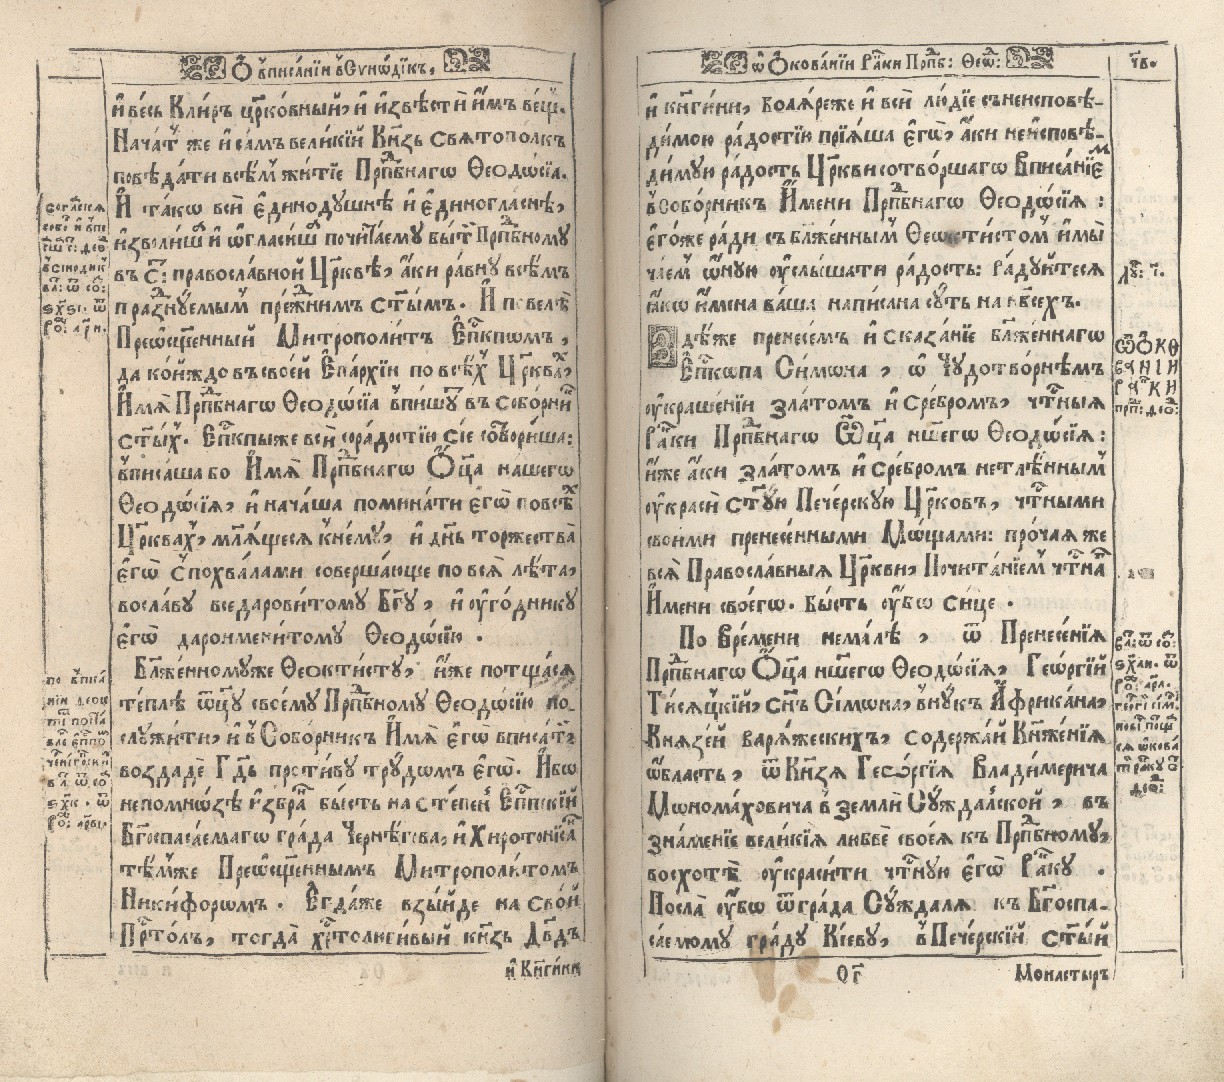 Ѽ вписа́нїи в̾ Сѵнѡ́дїкъ,
и҆ весь Кли́ръ цр҃ко́вный, и҆ и҆звѣстѝ и҆̀мъ ве́щь.
Нача́тъ же и҆ са́мъ вели́кїй Кн҃зь Свѧтопо́лкъ
повѣ́дати всѣ̑мъ житїѐ Прпⷣбнагѡ Ѳеодо́сїа.
И҆ та́кѡ всѝ є҆динодꙋ́шнѣ и҆ є҆диногла́снѣ,
и҆зво́лиша и҆ ѡ҆гласи́ша почита́емꙋ бы́ти Прпⷣбномꙋ
въ С: правосла́вной Цр҃квѐ, а҆́ки ра́внꙋ всѣ̑мъ
пра́зднꙋемымъ пре́жднимъ ст҃ы̑мъ. И҆ повелѣ̀
Преѡсщ҃е́нный Митрополи́тъ Є҆пⷭ҇кпѡмъ,
да ко́йждо въ свое́й Є҆па́рхїи по всѣ́хъ Цр҃ква́хъ
И҆́мѧ Прпⷣбнагѡ Ѳеодѡ́сїа впи́шꙋтъ въ собо́рникъ
ст҃ы́хъ. Є҆пⷭ҇кпыже всѝ со ра́достїю сїѐ сотвори́ша:
вписа́ша бо И҆́мѧ Прпⷣбнагѡ Ѻ҆ц҃а̀ на́шегѡ
Ѳеодѡ́сїѧ, и҆ нача́ша помина́ти є҆гѡ̀ по всѣ́хъ
Цр҃ква́хъ, млѧ́щесѧ к̾немꙋ̀, и҆ дн҃ь торжества̀
є҆гѡ̀ с̾похва́лами соверша́юще по всѧ̀ лѣ́та,
во сла́вꙋ вседарови́томꙋ Бг҃ꙋ, и҆ оу҆го́дникꙋ
є҆гѡ̀ дароимени́томꙋ Ѳеодѡ́сїю.
Бл҃же́нномꙋже Ѳеокти́стꙋ, и҆́же потща́сѧ
те́плѣ ѻ҆ц҃ꙋ̀ своемꙋ̀ Прпⷣбномꙋ Ѳеодѡ́сїю по-
слꙋжи́ти, и҆ в̾ Собо́рникъ И҆́мѧ є҆гѡ̀ вписа́ти:
воздадѐ Гдⷭ҇ь проти́вꙋ трꙋдѡ́мъ є҆гѡ̀. И҆́бо
непомно́зѣ и҆збра́нъ бы́сть на сте́пень Є҆пⷭ҇кпскїй
Бг҃оспаса́емагѡ гра́да Черне́гова, и҆ Хиротониса́нъ
тѣ́мже Преѡсщ҃е́ннымъ Митрополи́томъ
Ники́форомъ. Є҆гда́же взы́йде на сво́й
Прⷭ҇то́лъ, тогда̀ хрⷭ҇толиби́вый кн҃зь Дв҃дъ
и҆ Кн҃ги́ни
по вписа́
нїи
ѡ҆ Ѻ҆кова́нїи Ра́ки Прпⷣб: Ѳеѡⷣ:
н҃в.
и҆ кн҃ги́ни, Боѧ́реже и҆ всѝ лю́дїе съ неисповѣ-
ди́мою ра́достїю прїѧ́ша є҆гѡ̀, а҆́ки неисповѣ-
ди́мꙋю ра́дость Цр҃кви сотво́ршагѡ Вписа́нїемъ
в̾ Собо́рникъ И҆́мени Прпⷣбнагѡ Ѳеодѡ́сїѧ:
є҆го́же ра́ди съ бл҃же́ннымъ Ѳеокти́стомъ и҆ мы̀
ча́емъ ѻ҆́нꙋю оу҆слы́шати ра́дость: Ра́дꙋйтесѧ
ꙗ҆́кѡ и҆мена̀ ва́ша напи́сана сꙋ́ть на нб҃се́хъ.
Здѣ́же пренесе́мъ и҆ сказа́нїе бл҃же́ннагѡ
Є҆пⷭ҇кпа Си́мѡна, ѡ҆ чꙋдотво́рнѣмъ
оу҆краше́нїи зла́томъ и҆ сребро́мъ, чⷭ҇тны́ѧ
Ра́ки Прпⷣбнагѡ Ѻ҆ц҃а̀ нш҃егѡ Ѳеодѡ́сїѧ:
и҆́же а҆́ки зла́томъ и҆ сребро́мъ нетлѣ́ннымъ
оу҆красѝ ст҃ꙋ́ю Пече́рскꙋю Цр҃ковъ, чⷭ҇тны́ми
свои́ми пренесе́нными Мѡща́ми: про́чаѧ же
всѧ̀ Правосла́вныѧ Цр҃кви, Почита́нїемъ чⷭ҇тна́гѡ
И҆́мени своегѡ̀. Бы́сть оу҆́бѡ си́це.
По вре́мени нема́лѣ, ѿ Пренесе́нїѧ
Прпⷣбнагѡ Ѻ҆ц҃а̀ нш҃егѡ Ѳеодѡ́сїѧ, Геѡ́ргїй
Ти́сѧцкїй, сн҃ъ Сі́мѡна, внꙋ́къ А҆фрика́на,
Кнѧзе́й варѧ́жескихъ, содержа́й Кнѧже́нїѧ
ѻ҆́бласть, ѿ Кн҃зѧ Гео́ргїѧ Влади́мерича
Мѡнома́ховича в̾ землѝ Сꙋ́ждалской, въ
зна́менїе вели́кїѧ любвѐ своеѧ̀ къ Прпⷣбномꙋ,
восхотѣ̀ оу҆краси́ти чⷭ҇тнꙋ́ю є҆гѡ̀ Ра́кꙋ.
Посла̀ оу҆́бѡ ѿ гра́да Сꙋ́ждалѧ къ Бг҃оспа-
са́емомꙋ гра́дꙋ Кі́евꙋ, в̾ Пече́рскїй ст҃ы́й
ѿ Ѻ҆ко
ва́нїи
ра́ки
прпⷣ: ѳеѡⷣ:
о҃г
Монасты́ръ